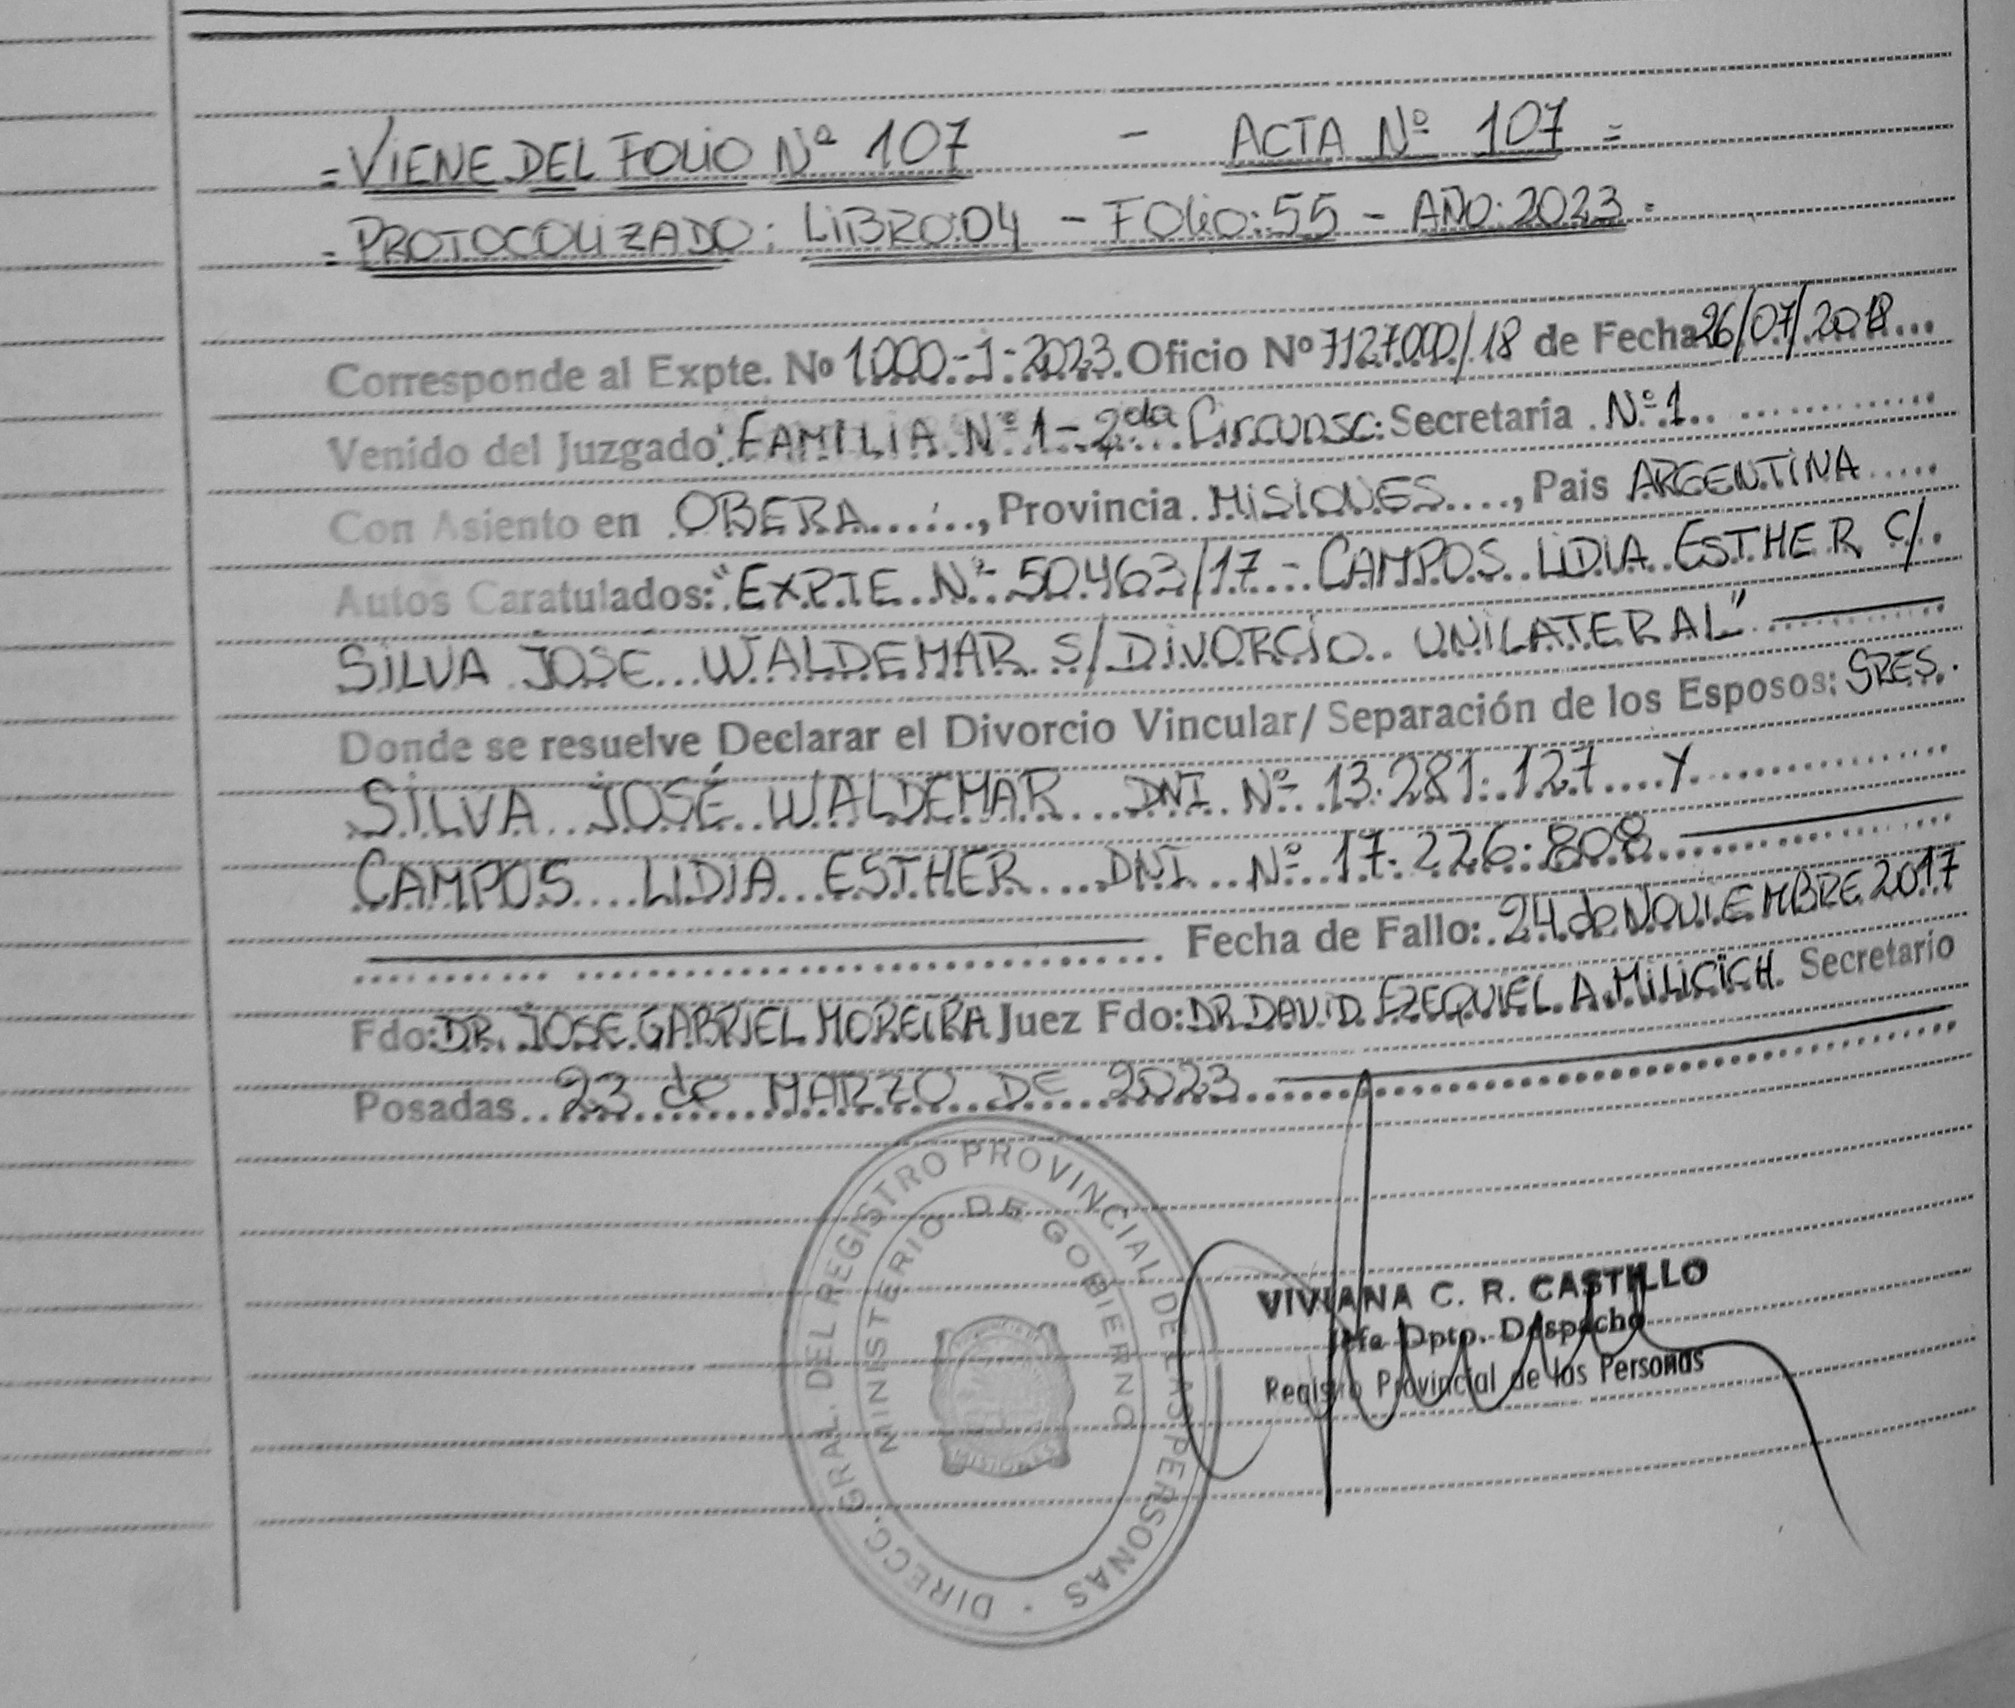 =VIENE DEL FOLIO Nº 107 - ACTA Nº 107=
=PROTOCOLIZADO: LIBRO:04 - FOLIO:55 - AÑO:2023=
Corresponde al Expte. Nº 1000-J-2023 Oficio Nº 7127000/18 de Fecha 26/07/2018
Venido del Juzgado: FAMILIA Nº 1 - 2da Circunsc: Secretaría Nº 1
Con Asiento en OBERA, Provincia MISIONES, Pais ARGENTINA
Autos Caratulados: "EXPTE Nº 50463/17 - CAMPOS LIDIA ESTHER C/
SILVA JOSE WALDEMAR S/DIVORCIO UNILATERAL"
Donde se resuelve Declarar el Divorcio Vincular/ Separación de los Esposos: SRES.
SILVA JOSÉ WALDEMAR DNI Nº 13.281.127 Y
CAMPOS LIDIA ESTHER DNI Nº 17.226.808
Fecha de Fallo: 24 de NOVIEMBRE 2017
Fdo: DR. JOSE GABRIEL MOREIRA Juez Fdo: DR DAVID EZEQUIEL A. MILICICH Secretario
Posadas 23 de MARZO DE 2023
DIRECC. GRAL. DEL REGISTRO PROVINCIAL DE LAS PERSONAS
MINISTERIO DE GOBIERNO
MISIONES
VIVIANA C. R. CASTILLO
Jefa Dpto. Despacho
Registro Provincial de las Personas